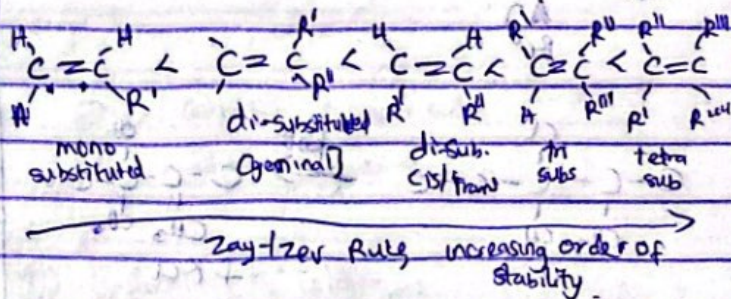 H H R' H H R' R'' R'' R'''
C = C < C = C < C = C < C = C < C = C
H R' R'' R' R'' H R''' R' R''''
mono substituted
di-substituted [geminal]
di-sub. cis/trans
tri subs
tetra sub
Zay-tzev Rule, increasing order of
stability